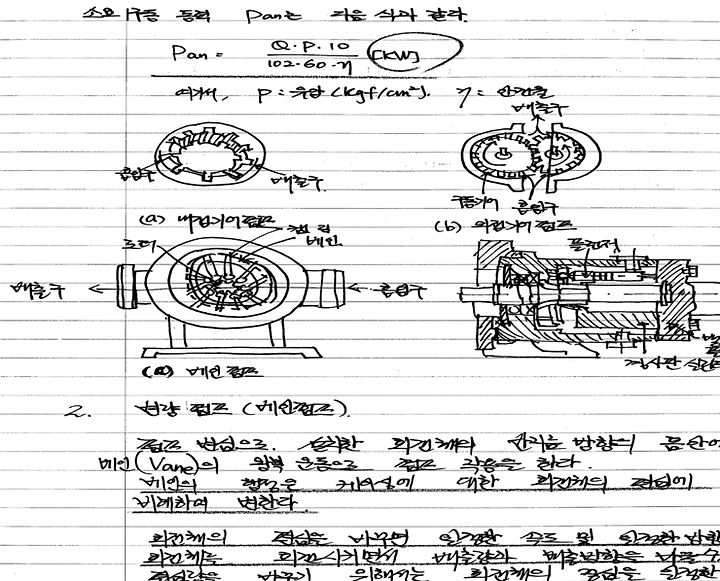 소요 구동 동력 Pan는 다음 식과 같다.
Pan = Q·P·10 / 102·60·η [KW]
여기서, P : 유압 (kgf/cm²). η =
배출구
흡입구
배출구
구동기어 흡입구
(a) 내접기어펌프
(b) 외접기어펌프
로터
캠링
베인
플런저
배출구
흡입구
경사판 실린더
(a) 베인 펌프
2. 변량 펌프 (베인펌프).
펌프 회전체의 방향의
베인(Vane)의 왕복 운동으로 펌프 작용을 한다.
베인의 행정은 케이싱에 대한 회전체의 편심에
비례하여 변한다
회전체의 편심을 바꾸면 일정한 속도 및 일정한
회전체를 회전시키면서 배출량과 배출방향을 바꿀 수
편심량을 바꾸기 위해서는 회전체의 중심을 일정한